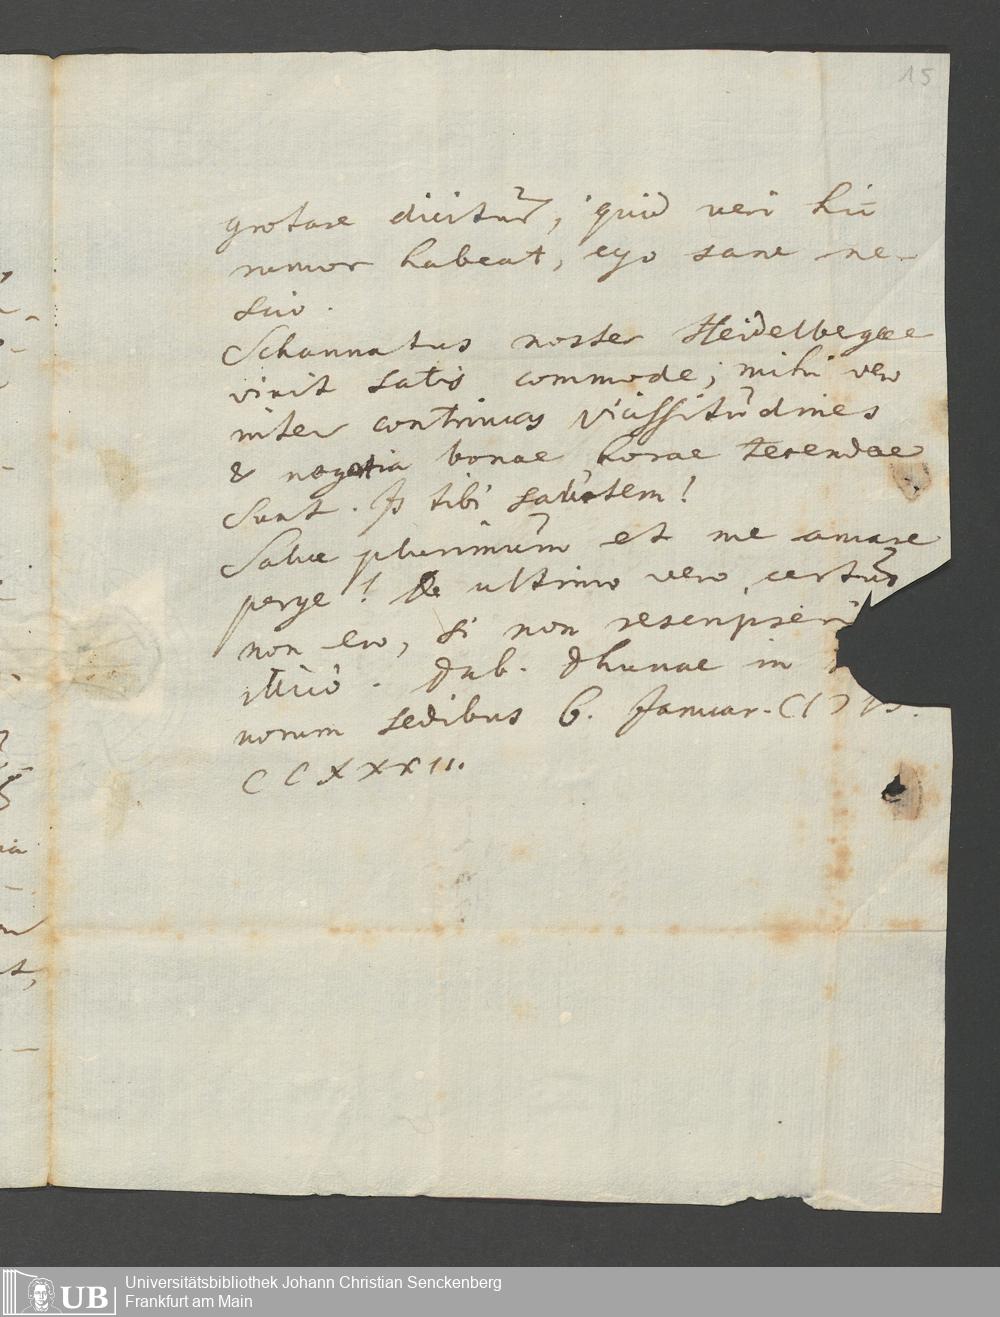 15
grotare dicitur, quid veri hic
rumor habeat, ego sane ne-
scio.
Schannatus noster Heidelbergae
vivit satis commode; mihi vero
inter continuas vicissitudines
& negotia bonae horae terendae
sunt. Is tibi salutem!
Salve plurimum et me amare
perge! De ultimo vero certus
non ero, si non rescripseri
illico. Dab. Dhunae in
norum sedibus 6. Januar. CIƆIƆ.
CCXXXII.
Universitätsbibliothek Johann Christian Senckenberg
Frankfurt am Main
UB